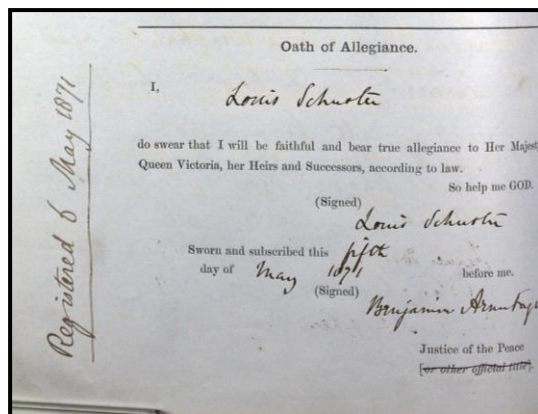 Oath of Allegiance.
I,
Louis Schuster
do swear that I will be faithful and bear true allegiance to Her Majest
Queen Victoria, her Heirs and Successors, according to law.
So help me GOD.
(Signed)
Louis Schuster
Sworn and subscribed this fifth
day of May 1871 before me.
(Signed)
Benjamin Armitage
Justice of the Peace
[or other official title].
Registered 6 May 1871